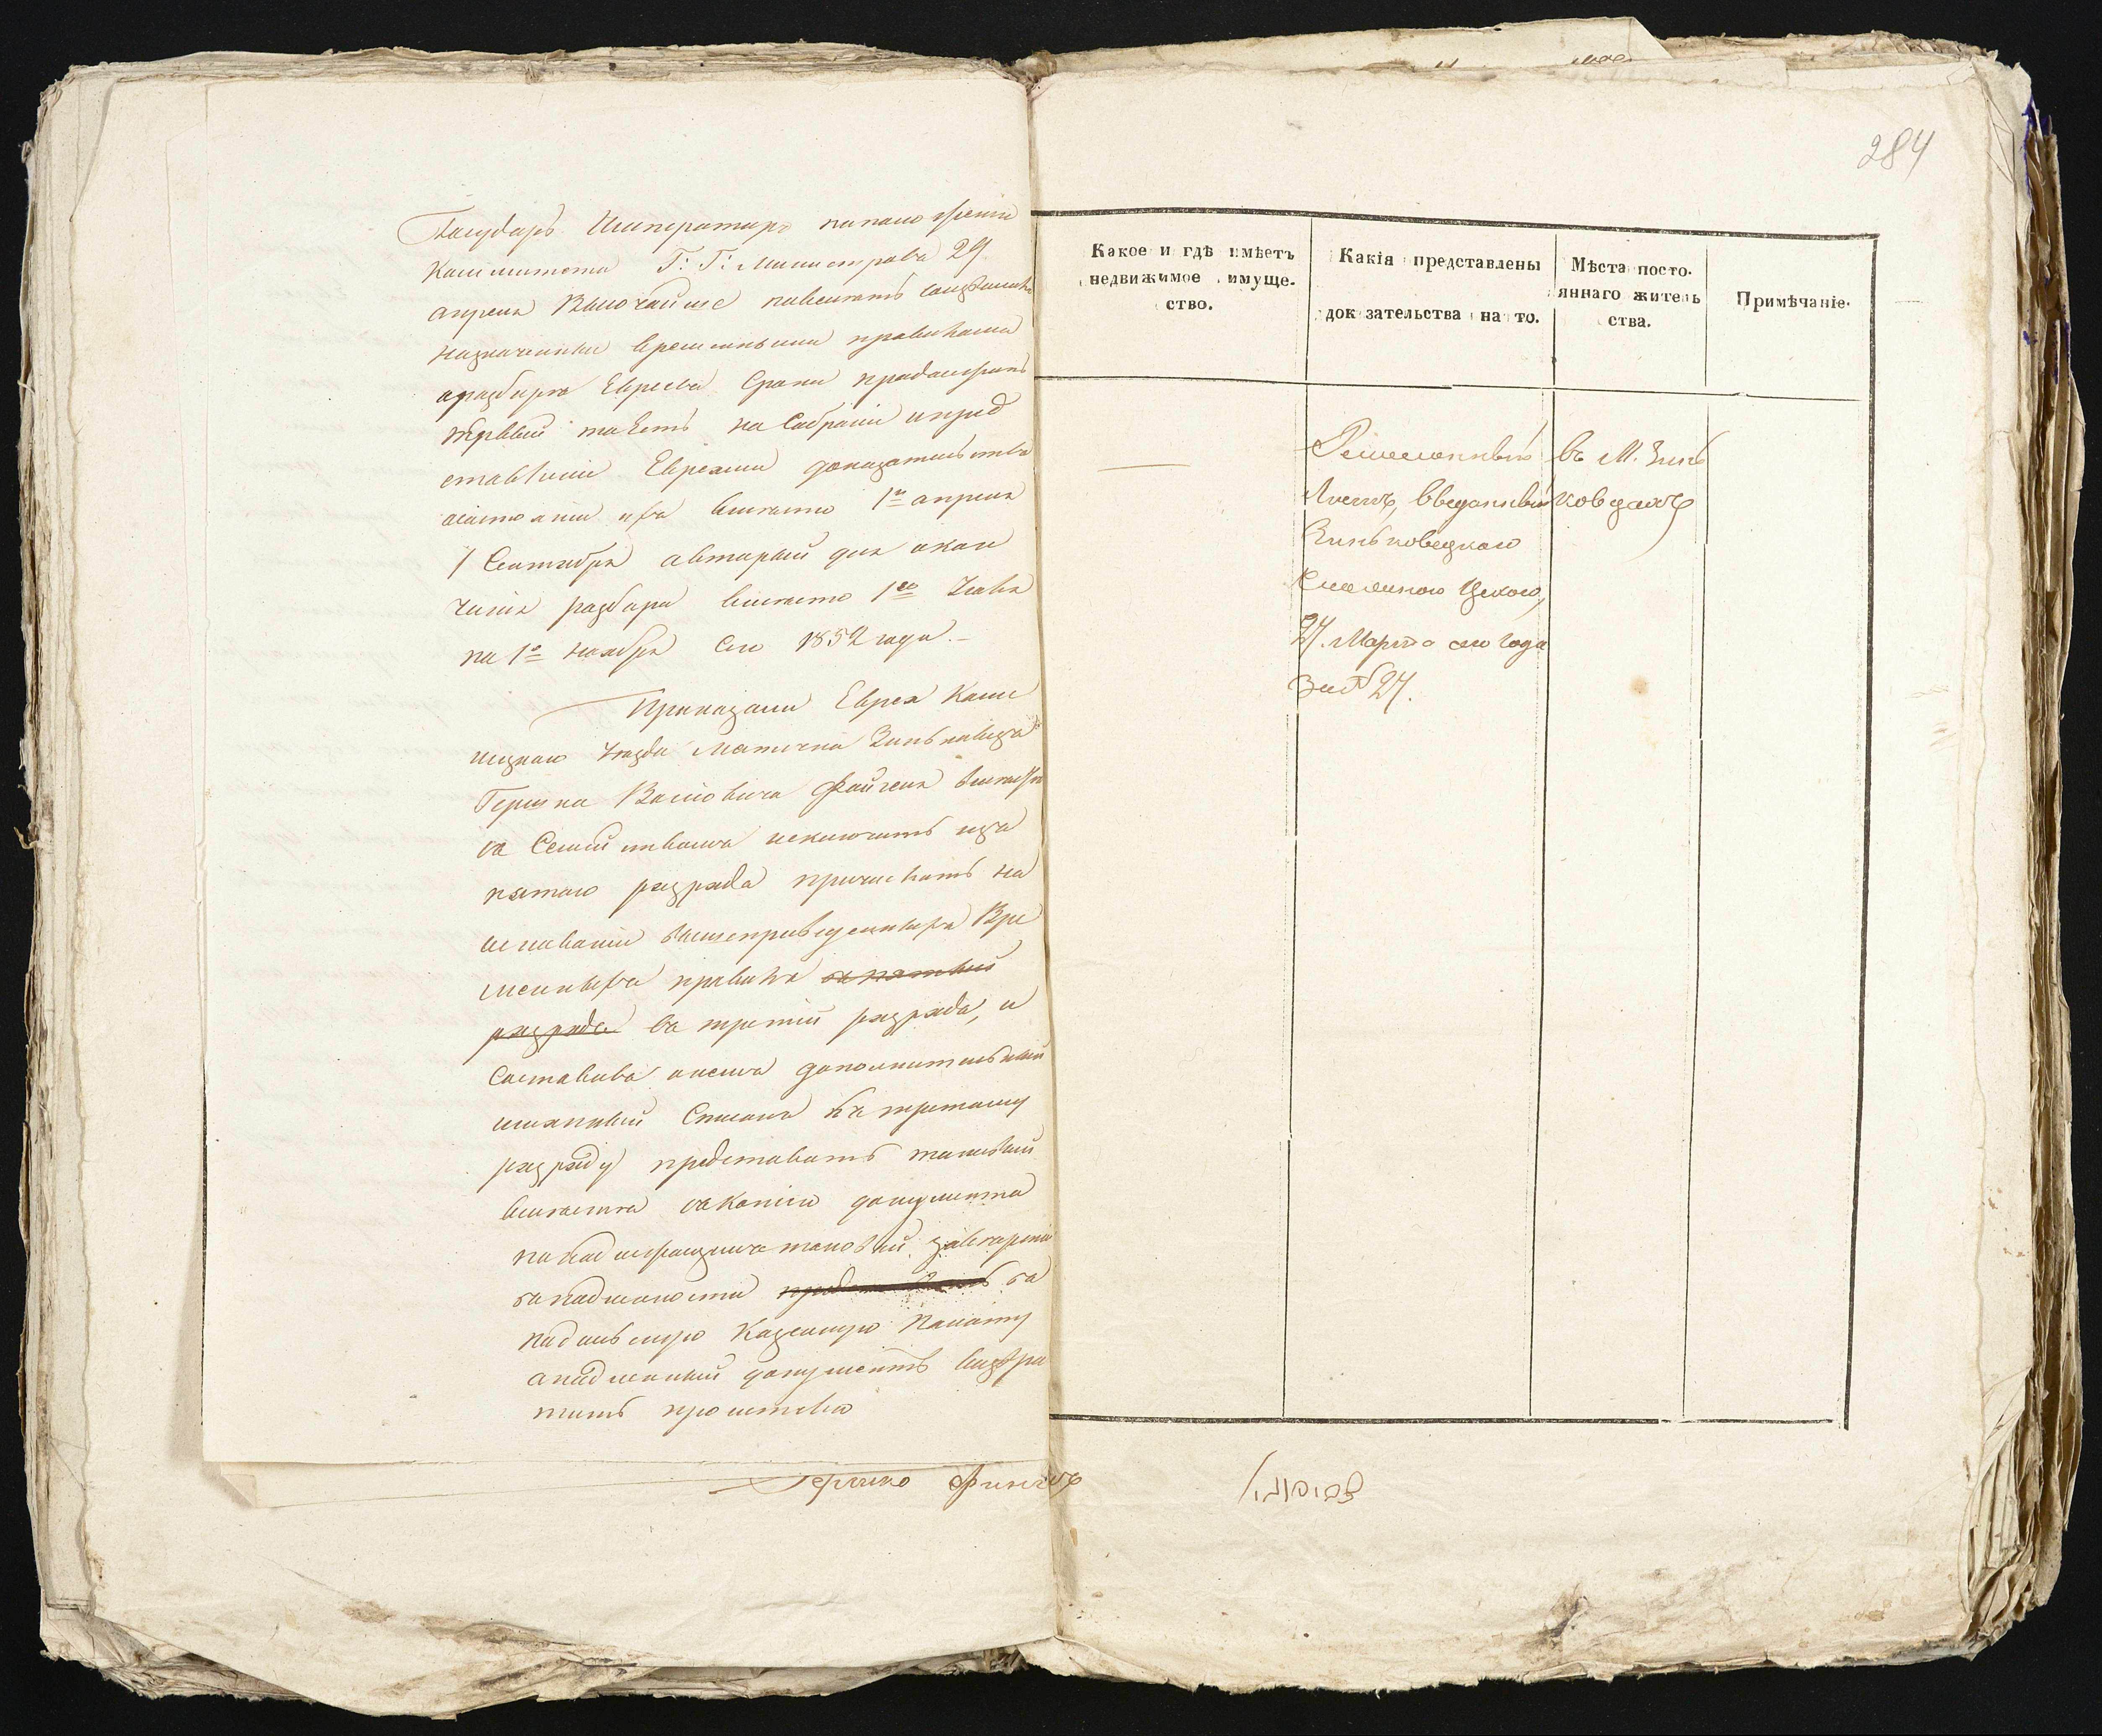 284
Государь Императоръ по положенію
Комитета Г: Г: Министровъ 29
апреля Высочайше повелеть соизволилъ
назначенные временными правилами
о разборе Евреевъ Сроки продолжить
первый то есть на Собраніе и пред
ставленіе Евреями доказательствъ
о состояніи ихъ вместо 1го апреля
1 Сентября а вторый для окон
чанія разбора вместо 1го Іюля
на 1е ноября сего 1852 года.
Приказали Еврея
уезда Местечка Зиньковецъ
Гершка
съ Семействомъ исключить изъ
пятаго разряда причислить на
основаніи вышеприведенныхъ Вре
менныхъ правилъ въ пятый
разрядъ въ третій разрядъ, и
Составивъ о немъ дополнительный
имянный Списокъ къ третьему
разряду представить таковый
вместе съ копіею документа
по надлежащемъ таковой
въ
Подольскую Казенную Палату
а подленный документъ возвра
тить
Гершко
Какое и где имѣетъ
недвижимое имуще-
ство.
Какія представлены
док зательства на то.
Мѣста посто-
яннаго житель
ства.
Примѣчаніе.
Ремесленный
Листъ, выданный
Зиньковецкого
Цехого,
27. Марта сего года
за № 27.
въ М. Зинь
ковцахъ